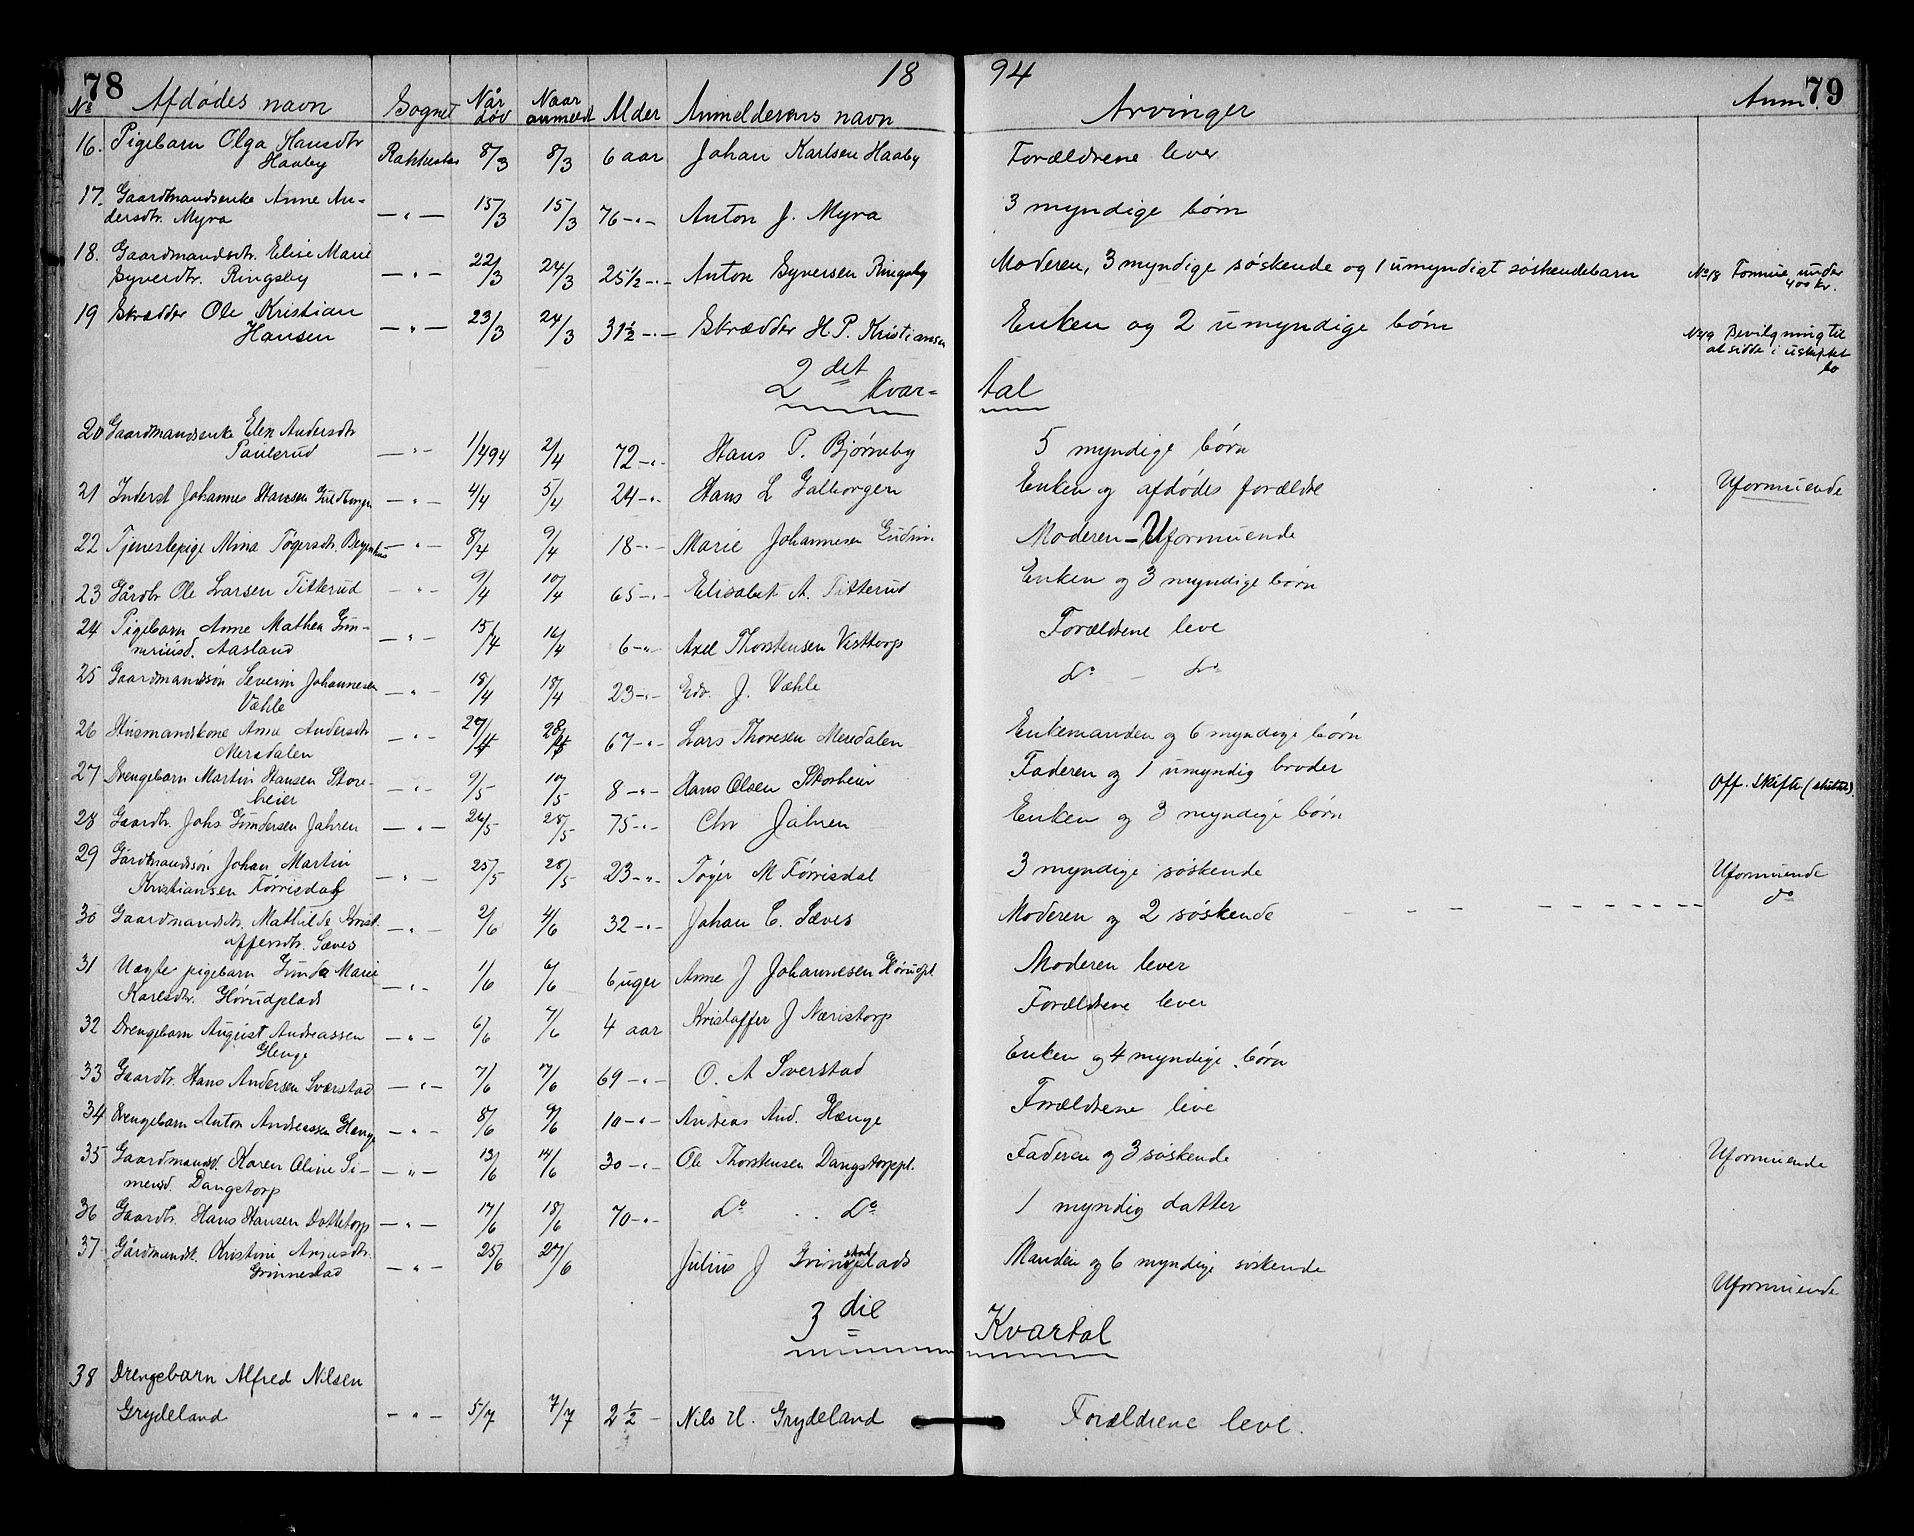 78 18 94 79
No Afdødes navn Sognet Når død Naar anmeldt Alder Anmelderens navn Arvinger Anm.
16. Pigebarn Olga Hansdtr
Haaby Rakkestad 8/3 8/3 6 aar Johan Karlsen Haaby Forældrene lever
17. Gaardmandsenke Anne An-
dersdtr. Myra —"— 15/3 15/3 76 -"- Anton J. Myra 3 myndige børn
18. Gaardmandsdtr. Elise Marie
Syverdtr. Ringsby —"— 22/3 24/3 25 1/2 -"- Anton Syversen Ringsby Moderen, 3 myndige søskende og 1 umyndigt søskendebarn No 18 Formue under
400 kr.
19 Skrædder Ole Kristian
Hansen —"— 23/3 24/3 31 1/2 -"- Skrædder H. P. Kristiansen Enken og 2 umyndige børn No 19 Bevilgning til
at sidde i uskiftet
bo
2det Kvar= tal
20 Gaardmandsenke Elen Andersdtr
Paulsrud —"— 1/4 94 2/4 72 -"- Hans P. Bjørneby 5 myndige børn
21 Inderst Johannes Hansen —"— 4/4 5/4 24 -"- Hans L Enken og afdødes forældre Uformuende
22 Tjenestepige Mina Tøgersdtr. —"— 8/4 9/4 18 -"- Marie Johannesen Moderen - Uformuende
23 Gårdbr Ole Larsen Titterud —"— 9/4 10/4 65 -"- Elisabet A. Titterud Enken og 3 myndige børn
24 Pigebarn Anne Mathea Gun-
neriusd. Aasland —"— 15/4 16/4 6 -"- Axel Thorstensen Visttorp Forældrene leve
25 Gaardmandsøn Severin Johannesen
Væhle —"— 18/4 18/4 23 -"- Edv. J. Væhle do - do
26 Husmandskone Anne Andersdtr
Mersdalen —"— 27/4 28/4 67 -"- Lars Thoresen Meredalen Enkemanden og 6 myndige børn
27 Drengebarn Martin Hansen Store-
heier —"— 9/5 10/5 8 -"- Hans Olsen Storheier Faderen og 1 umyndig broder Off. skifte (sluttet).
28 Gaardbr. Johs. Gundersen Jahren —"— 26/5 28/5 75 -"- Chr Jahren Enken og 3 myndige børn
29 Gårdmandssøn Johan Martin
Kristiansen Førrisdal —"— 25/5 28/5 23 -"- Tøger M Førrisdal 3 myndige søskende Uformuende
30 Gaardmandsdtr. Mathilde Krist-
offersdtr. Sæves —"— 2/6 4/6 32 -"- Johan C. Sæves Moderen og 2 søskende - - - - - - - - do
31 Uægte pigebarn Gunda Marie
Karlsdtr. Hørudplads —"— 1/6 6/6 6 uger Anne J Johannesen Hørudpl Moderen lever
32 Drengebarn August Andreassen
Glenge —"— 6/6 7/6 4 aar Kristoffer J Næristorp Forældrene lever
33 Gaardbr. Hans Andersen Sværstad —"— 7/6 7/6 69 -"- O. A Sverstad Enken og 4 myndige børn
34 Drengebarn Anton Andreassen Glenge —"— 8/6 9/6 10 -"- Andreas And. Hænge Forældrene leve
35 Gaardmandsd. Karen Oline Si-
mensd. Dangstorp —"— 13/6 14/6 30 -"- Ole Thorstensen Dangstorppl. Faderen og 3 søskende Uformuende
36 Gaardbr. Hans Hansen Dattetorp —"— 17/6 18/6 70 -"- Do .. Do 1 myndig datter
37 Gårdmandsk. Kristine Arnesdtr.
Grinnestad —"— 25/6 27/6 Julius J Grinstadplads Manden og 6 myndige søskende Uformuende
3die Kvartal
38 Drengebarn Alfred Nilsen
Grydeland —"— 5/7 7/7 2 1/2 - Nils H. Grydeland Forældrene leve.